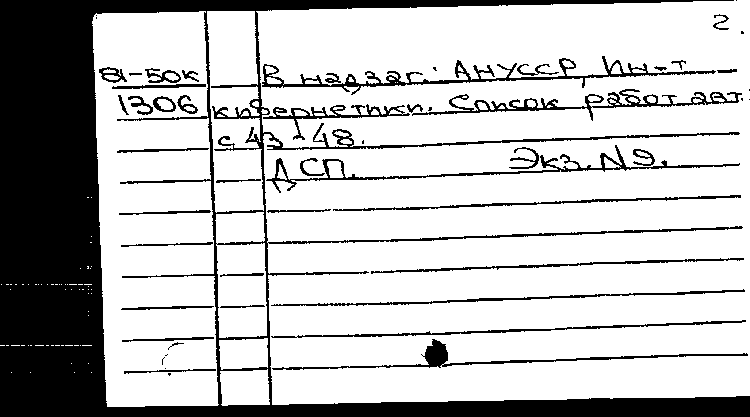 2.
81-50к В надзаг.: АН УССР, Ин-т
1306 кибернетики. Список работ авт.:
с 43-48.
ДСП. Экз. №9.